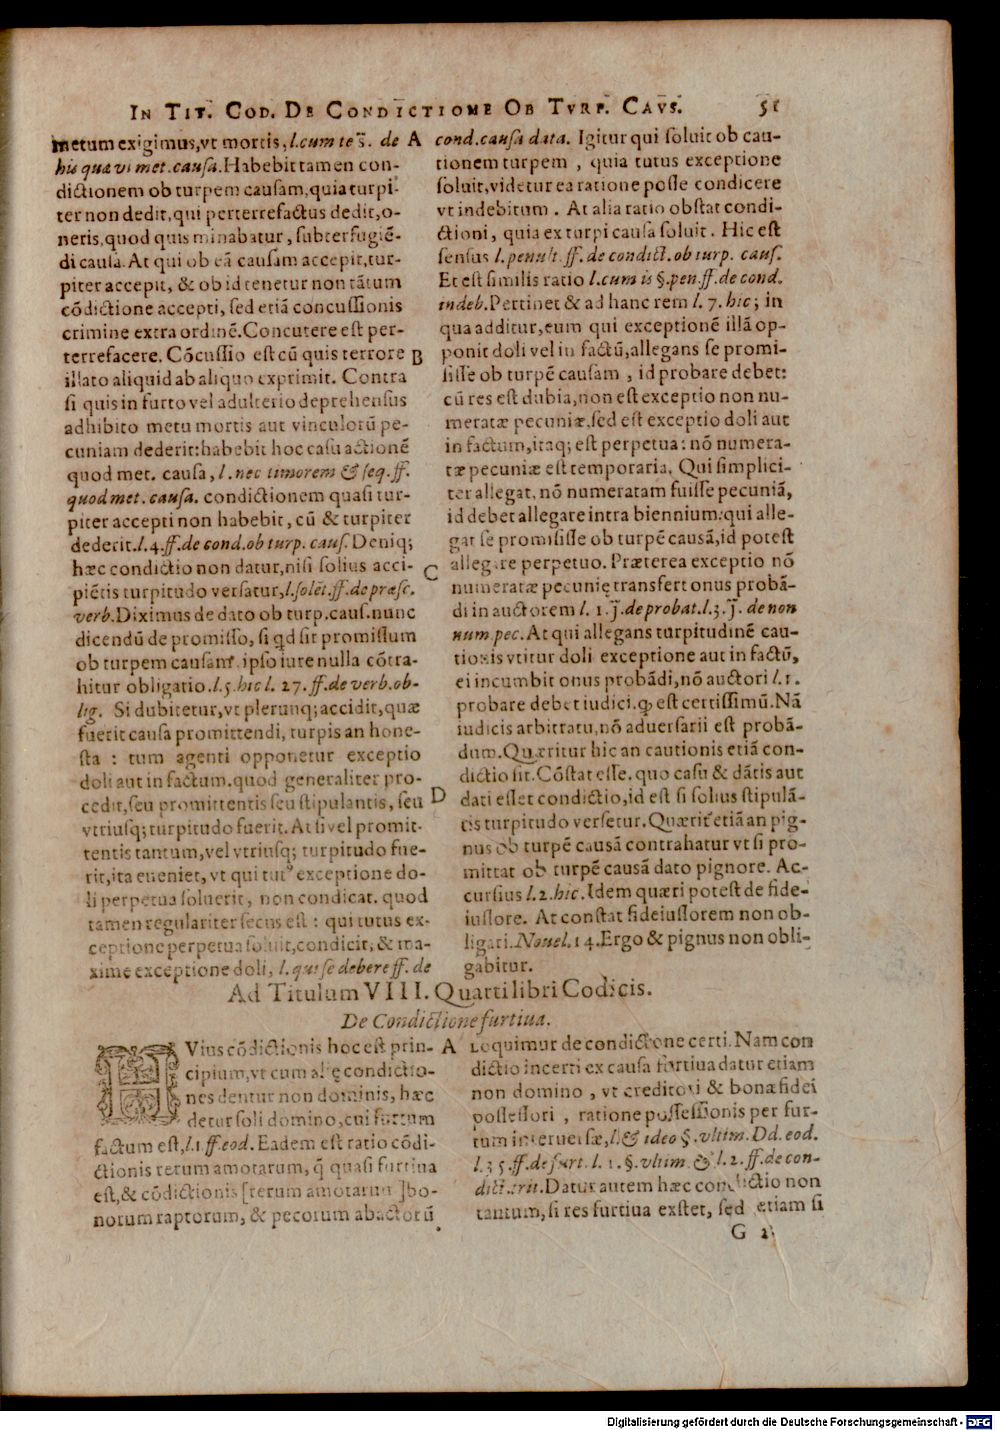 IN TIT. COD. DE CONDICTIONE OB TVRP. CAVS. 51
metum exigimus,vt mortis, l.cum te s̄. de
his quæ vi met.causa. Habebit tamen con-
dictionem ob turpem causam,quia turpi-
ter non dedit,qui perterrefactus dedit,o-
neris,quod quis minabatur, subterfugiē-
di causa. At qui ob eā causam accepit,tur-
piter accepit, & ob id tenetur non tātum
cōdictione accepti, sed etiā concussionis
crimine extra ordinē.Concutere est per-
terrefacere. Cōcussio est cū quis terrore
illato aliquid ab aliquo exprimit. Contra
si quis in furto vel adulterio deprehensus
adhibito metu mortis aut vinculorū pe-
cuniam dederit:habebit hoc casu actionē
quod met. causa, l. nec timorem & seq.ff.
quod met.causa. condictionem quasi tur-
piter accepti non habebit, cū & turpiter
dederit.l.4.ff.de cond.ob turp. caus. Deniq;
hæc condictio non datur,nisi solius acci-
piētis turpitudo versatur,l.solēt.ff.de præsc.
verb. Diximus de dato ob turp.caus.nunc
dicendū de promisso, si qd sit promissum
ob turpem causam, ipso iure nulla cōtra-
hitur obligatio.l.5.hic l. 27.ff.de verb.ob-
lig. Si dubitetur,vt plerunq;accidit,quæ
fuerit causa promittendi, turpis an hone-
sta : tum agenti opponetur exceptio
doli aut in factum.quod generaliter pro-
cedit,seu promittentis seu stipulantis, seu
vtriusq;turpitudo fuerit. At si vel promit-
tentis tantum,vel vtriusq; turpitudo fue-
rit,ita eueniet, vt qui tutꝰ exceptione do-
li perpetua soluerit, non condicat. quod
tamen regulariter secus est : qui tutus ex-
ceptione perpetua soluit,condicit, & ma-
xime exceptione doli, l. qui se debere ff. de
A
B
C
D
cond.causa data. Igitur qui soluit ob cau-
tionem turpem , quia tutus exceptione
soluit,videtur ea ratione posse condicere
vt indebitum . At alia ratio obstat condi-
ctioni, quia ex turpi causa soluit. Hic est
sensus l.penult.ff.de condict.ob turp. caus.
Et est similis ratio l.cum is §.pen.ff.de cond.
indeb. Pertinet & ad hanc rem l. 7. hic; in
qua additur,eum qui exceptionē illā op-
ponit doli vel in factū,allegans se promi-
sisse ob turpē causam , id probare debet:
cū res est dubia,non est exceptio non nu-
meratæ pecuniæ.sed est exceptio doli aut
in factum,itaq; est perpetua: nō numera-
tæ pecuniæ est temporaria. Qui simplici-
ter allegat, nō numeratam fuisse pecuniā,
id debet allegare intra biennium:qui alle-
gat se promisisse ob turpē causā,id potest
allegare perpetuo. Præterea exceptio nō
numeratæ pecunię transfert onus probā-
di in auctorem l. 1. J̄.de probat.l.3.J̄. de non
num pec. At qui allegans turpitudinē cau-
tionis vtitur doli exceptione aut in factū,
ei incumbit onus probādi,nō auctori l.1.
probare debet iudici.ꝙ est certissimū.Nā
iudicis arbitratu,nō aduersarii est probā-
dum.Quæritur hic an cautionis etiā con-
dictio sit. Cōstat esse. quo casu & dātis aut
dati esset condictio,id est si solius stipulā-
tis turpitudo versetur. Quærit'etiā an pig-
nus ob turpē causā contrahatur vt si pro-
mittat ob turpē causā dato pignore. Ac-
cursius l.2.hic. Idem quæri potest de fide-
iussore. At constat fideiussorem non ob-
ligari. Nouel. 14. Ergo & pignus non obli-
gabitur.
Ad Titulum VIII. Quarti libri Codicis.
De Condictione furtiua.
HVius cōdictionis hoc est prin-
cipium,vt cum alię condictio-
nes dentur non dominis, hæc
detur soli domino,cui furtum
factum est,l.1.ff.eod. Eadem est ratio cōdi-
ctionis rerum amotarum, q̄ quasi furtiua
est,& cōdictionis [rerum amotarum ]bo-
norum raptorum, & pecorum abactorū
A
Loquimur de condictione certi.Nam con
dictio incerti ex causa furtiua datur etiam
non domino , vt creditori & bonæ fidei
possessori , ratione possessionis per fur-
tum interuersæ,l.& ideo §.vltim. Dd. eod.
l.35.ff.de furt. l. 1. §. vltim. & l.2. ff.de con-
dict.trit. Datur autem hæc condictio non
tantum,si res furtiua exstet, sed etiam si
G 2
Digitalisierung gefördert durch die Deutsche Forschungsgemeinschaft - DFG